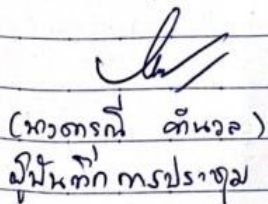 (นางดารณี คำนวล)
ผู้บันทึกการประชุม